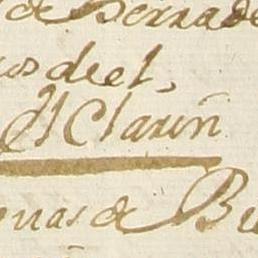 de Bernade
cos de el,
El Clarin
enas de Bu